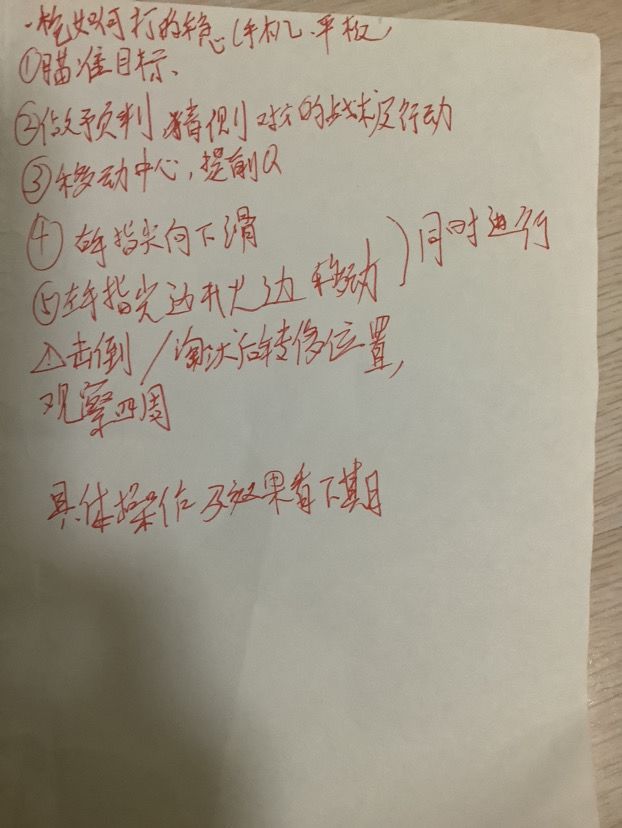 一枪如何打的稳(手机、平板)
①瞄准目标、
②做预判 猜测对方的战术及行动
③移动中心,提前Q
④右手指尖向下滑
⑤左手指尖边开火边移动 )同时进行
△击倒/淘汰后转移位置,
观察四周
具体操作及效果看下期